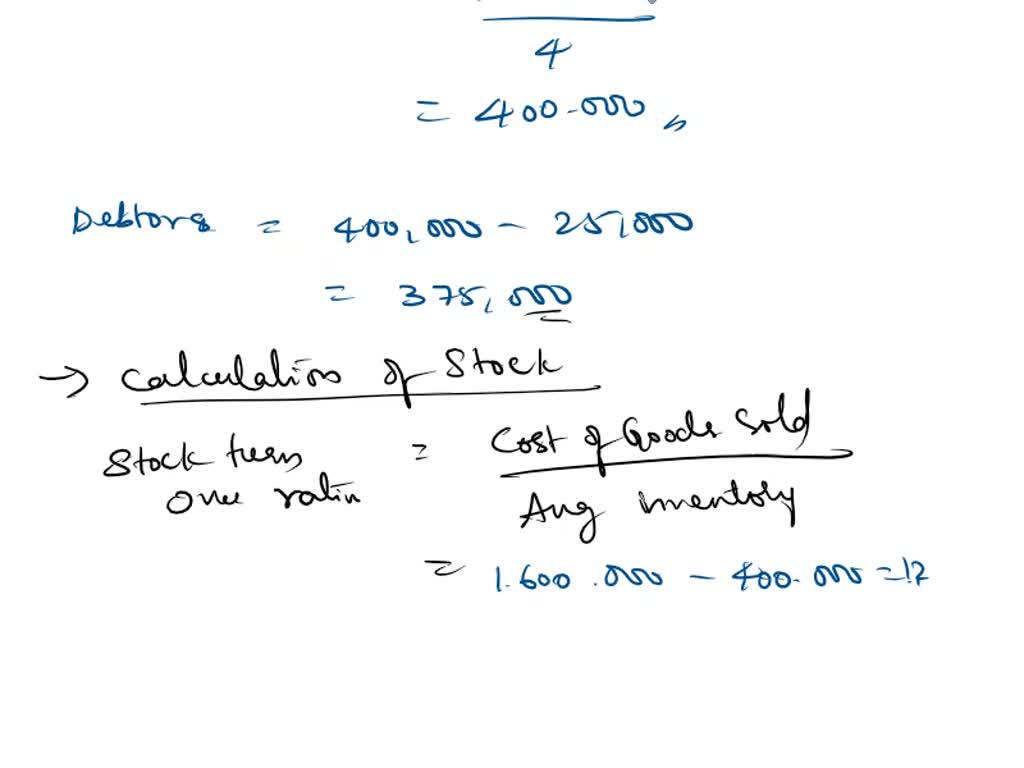 4
= 400.000
Debtors = 400,000 - 25,000
= 375,000
→ Calculation of Stock
Stock turn over ratio = Cost of Goods Sold
Avg inventory
= 1.600.000 - 400.000 = 12